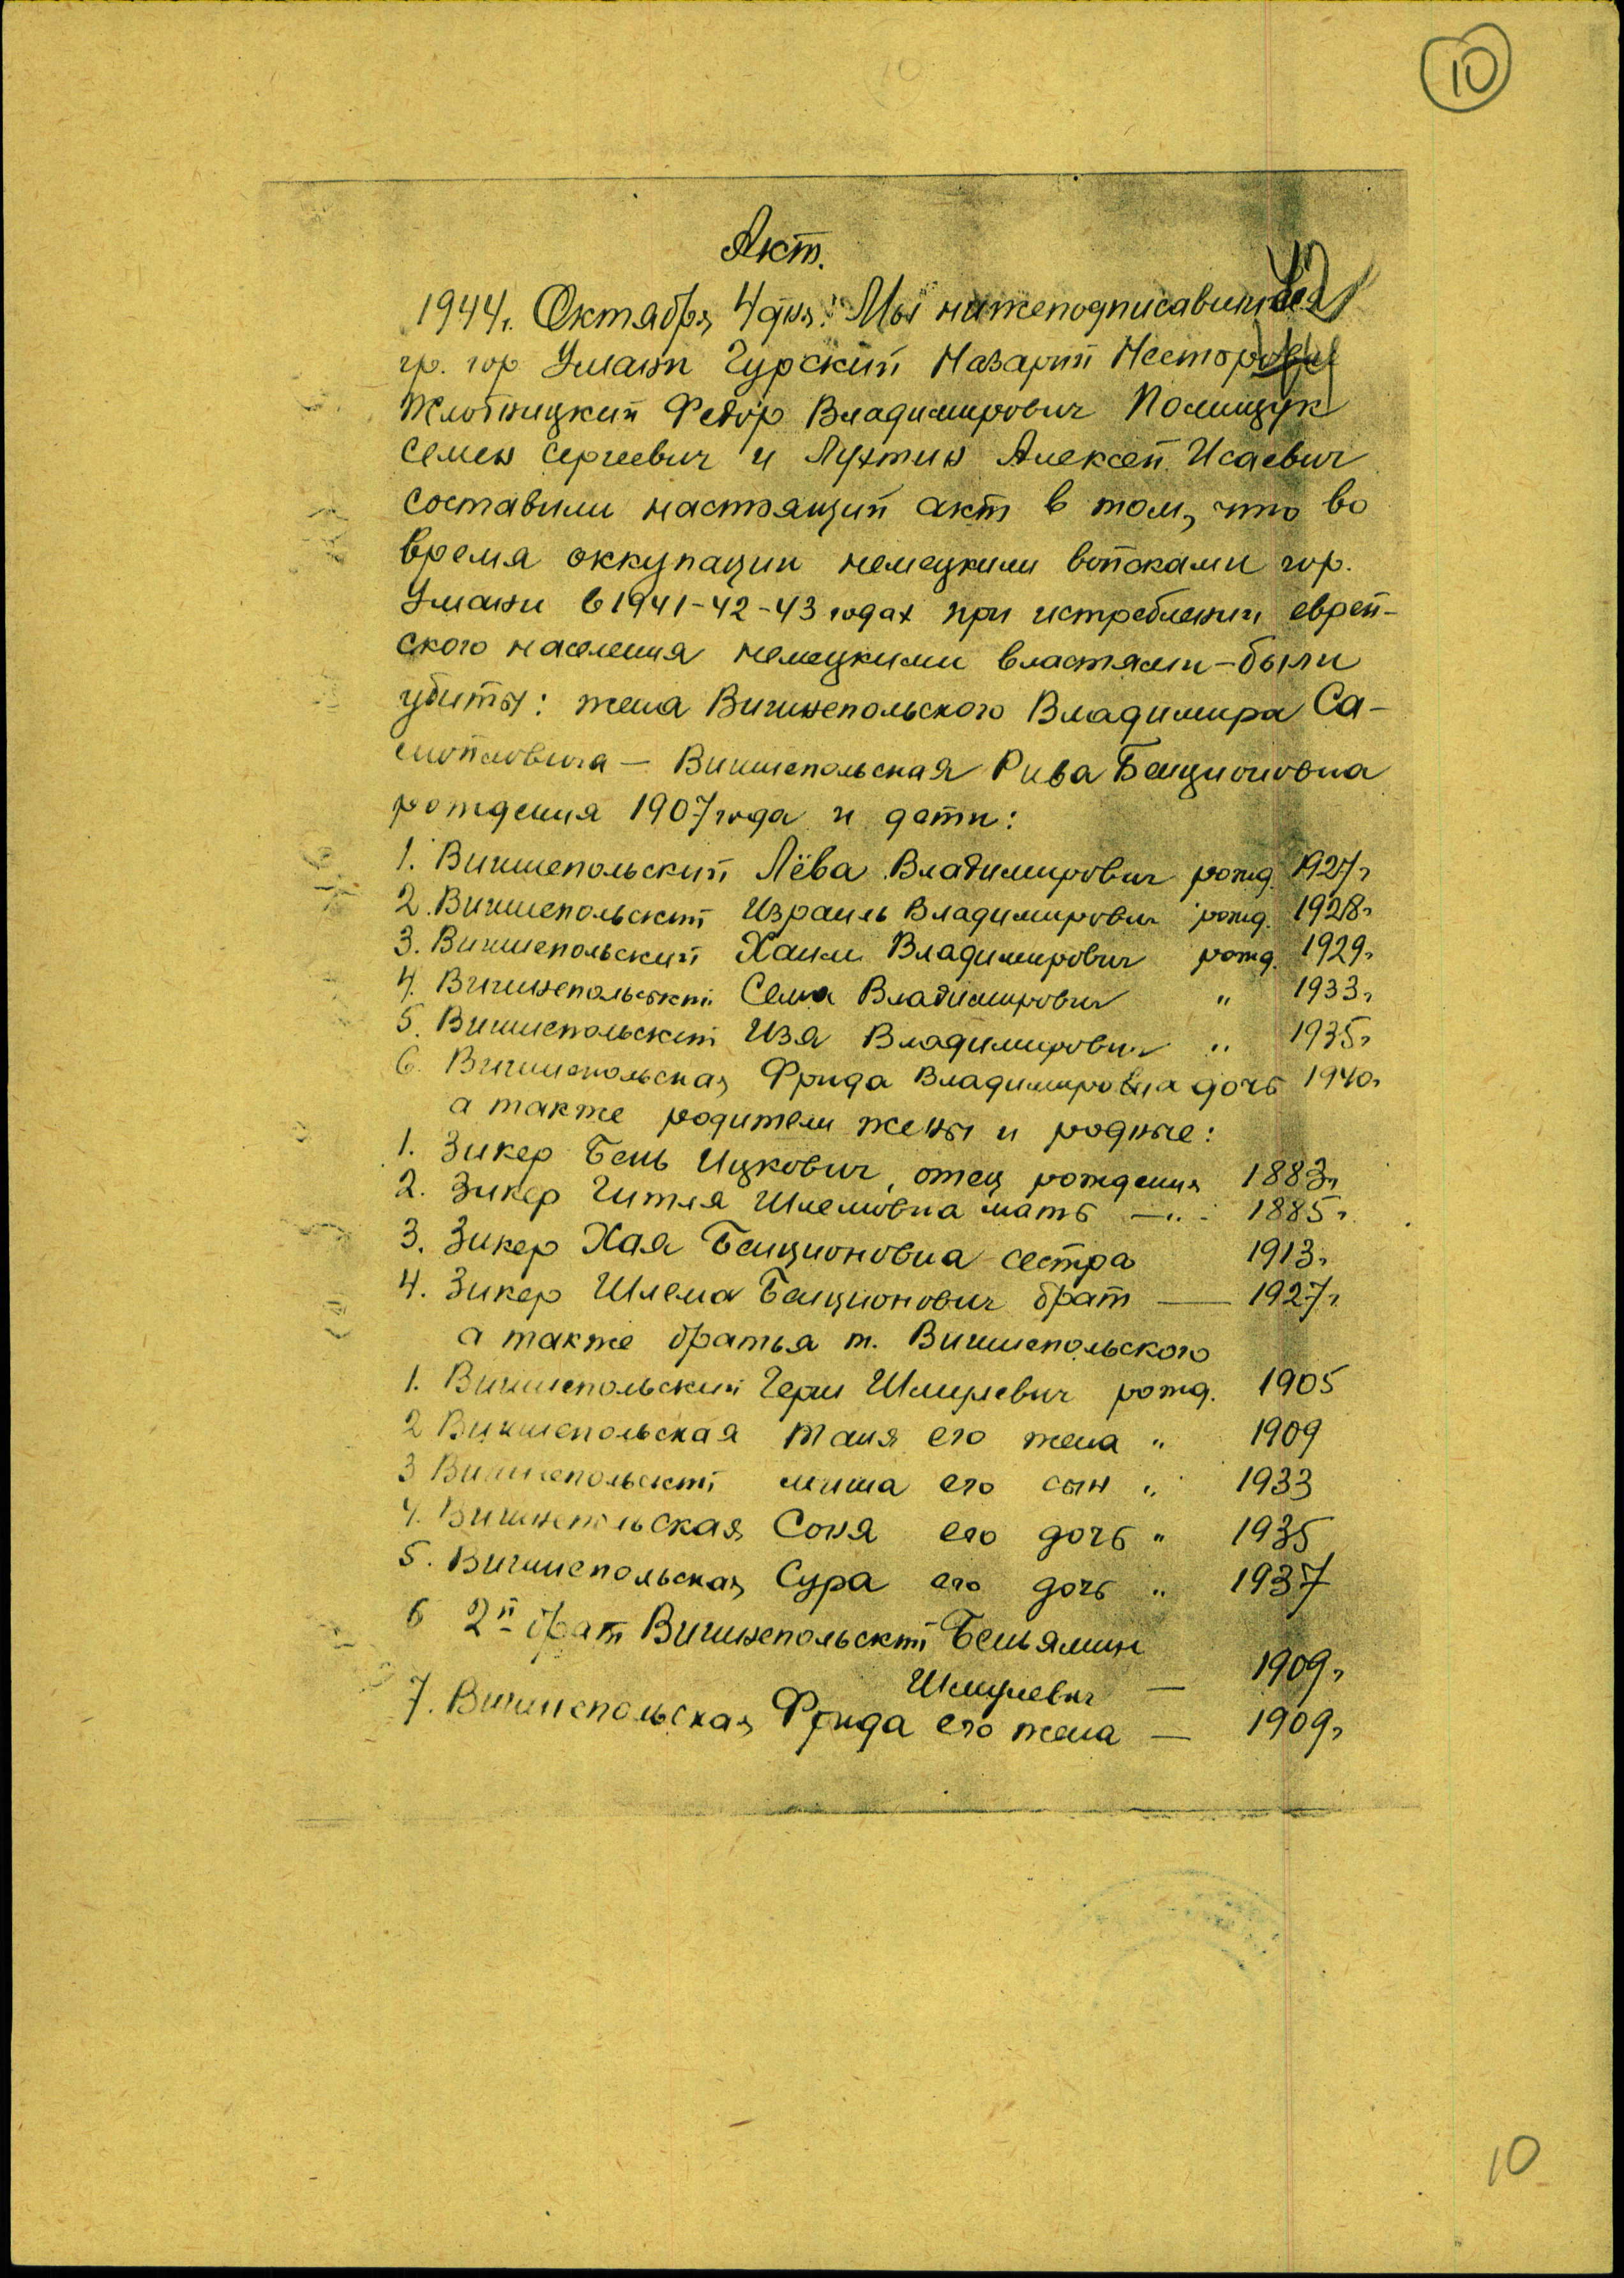 10
Акт.
1944г. Октября 4 дня. Мы нижеподписавшиеся
гр. гор Умани Гурский Назарий Несторович
Жлотницкий Федор Владимирович Полищук
Семен Сергеевич и Лухтин Алексей Исаевич
составили настоящий акт в том, что во
время оккупации немецкими войсками гор.
Умани в 1941-42-43 годах при истреблении еврей-
ского населения немецкими властями – были
убиты: жена Вишнепольского Владимира Са-
мойловича – Вишнепольская Рива Бенционовна
рождения 1907 года и дети:
1. Вишнепольский Лёва Владимирович рожд. 1927г
2. Вишнепольский Израиль Владимирович рожд. 1928г
3. Вишнепольский Хаим Владимирович рожд. 1929г
4. Вишнепольский Сема Владимирович " 1933г
5. Вишнепольский Изя Владимирович " 1935г
6. Вишнепольская Фрида Владимировна дочь 1940г
а также родители жены и родные:
1. Зикер Бень Ицкович, отец рождения 1883г
2. Зикер Гитля Шлемовна мать —"— 1885г.
3. Зикер Хая Бенционовна сестра 1913г
4. Зикер Шлема Бенционович брат — 1927г
а также братья т. Вишнепольского
1. Вишнепольский Герш Шмулевич рожд. 1905
2 Вишнепольская Таня его жена " 1909
3 Вишнепольский миша его сын " 1933
4. Вишнепольская Соня его дочь " 1935
5. Вишнепольская Сура его дочь " 1937
6 2й брат Вишнепольский Беньямин
Шмулевич — 1909г
7. Вишнепольская Фрида его жена — 1909г
10